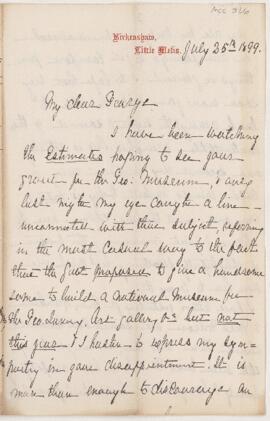 Acc 326
Birkenshaw,
Little Metis.
July 25th 1899.
My dear George
I have been watching
the Estimates hoping to see your
grant for the Geo. Museum, & only
last night my eye caught a line
unconnected with this subject, referring
in the most casual way to the fact
that the Govt proposed to give a handsome
some to build a national Museum for
the Geo. Survey, Art gallery &c but not
this year I hasten to express my sym-
pathy in your disappointment. It is
more than enough to discourage an